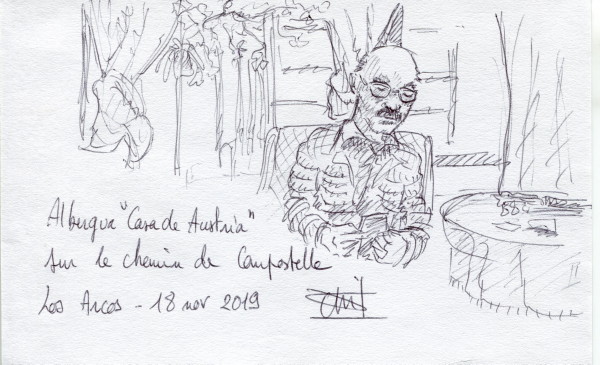 Albergua "Casa de Austria"
sur le chemin de Compostelle
Los Arcos - 18 nov 2019